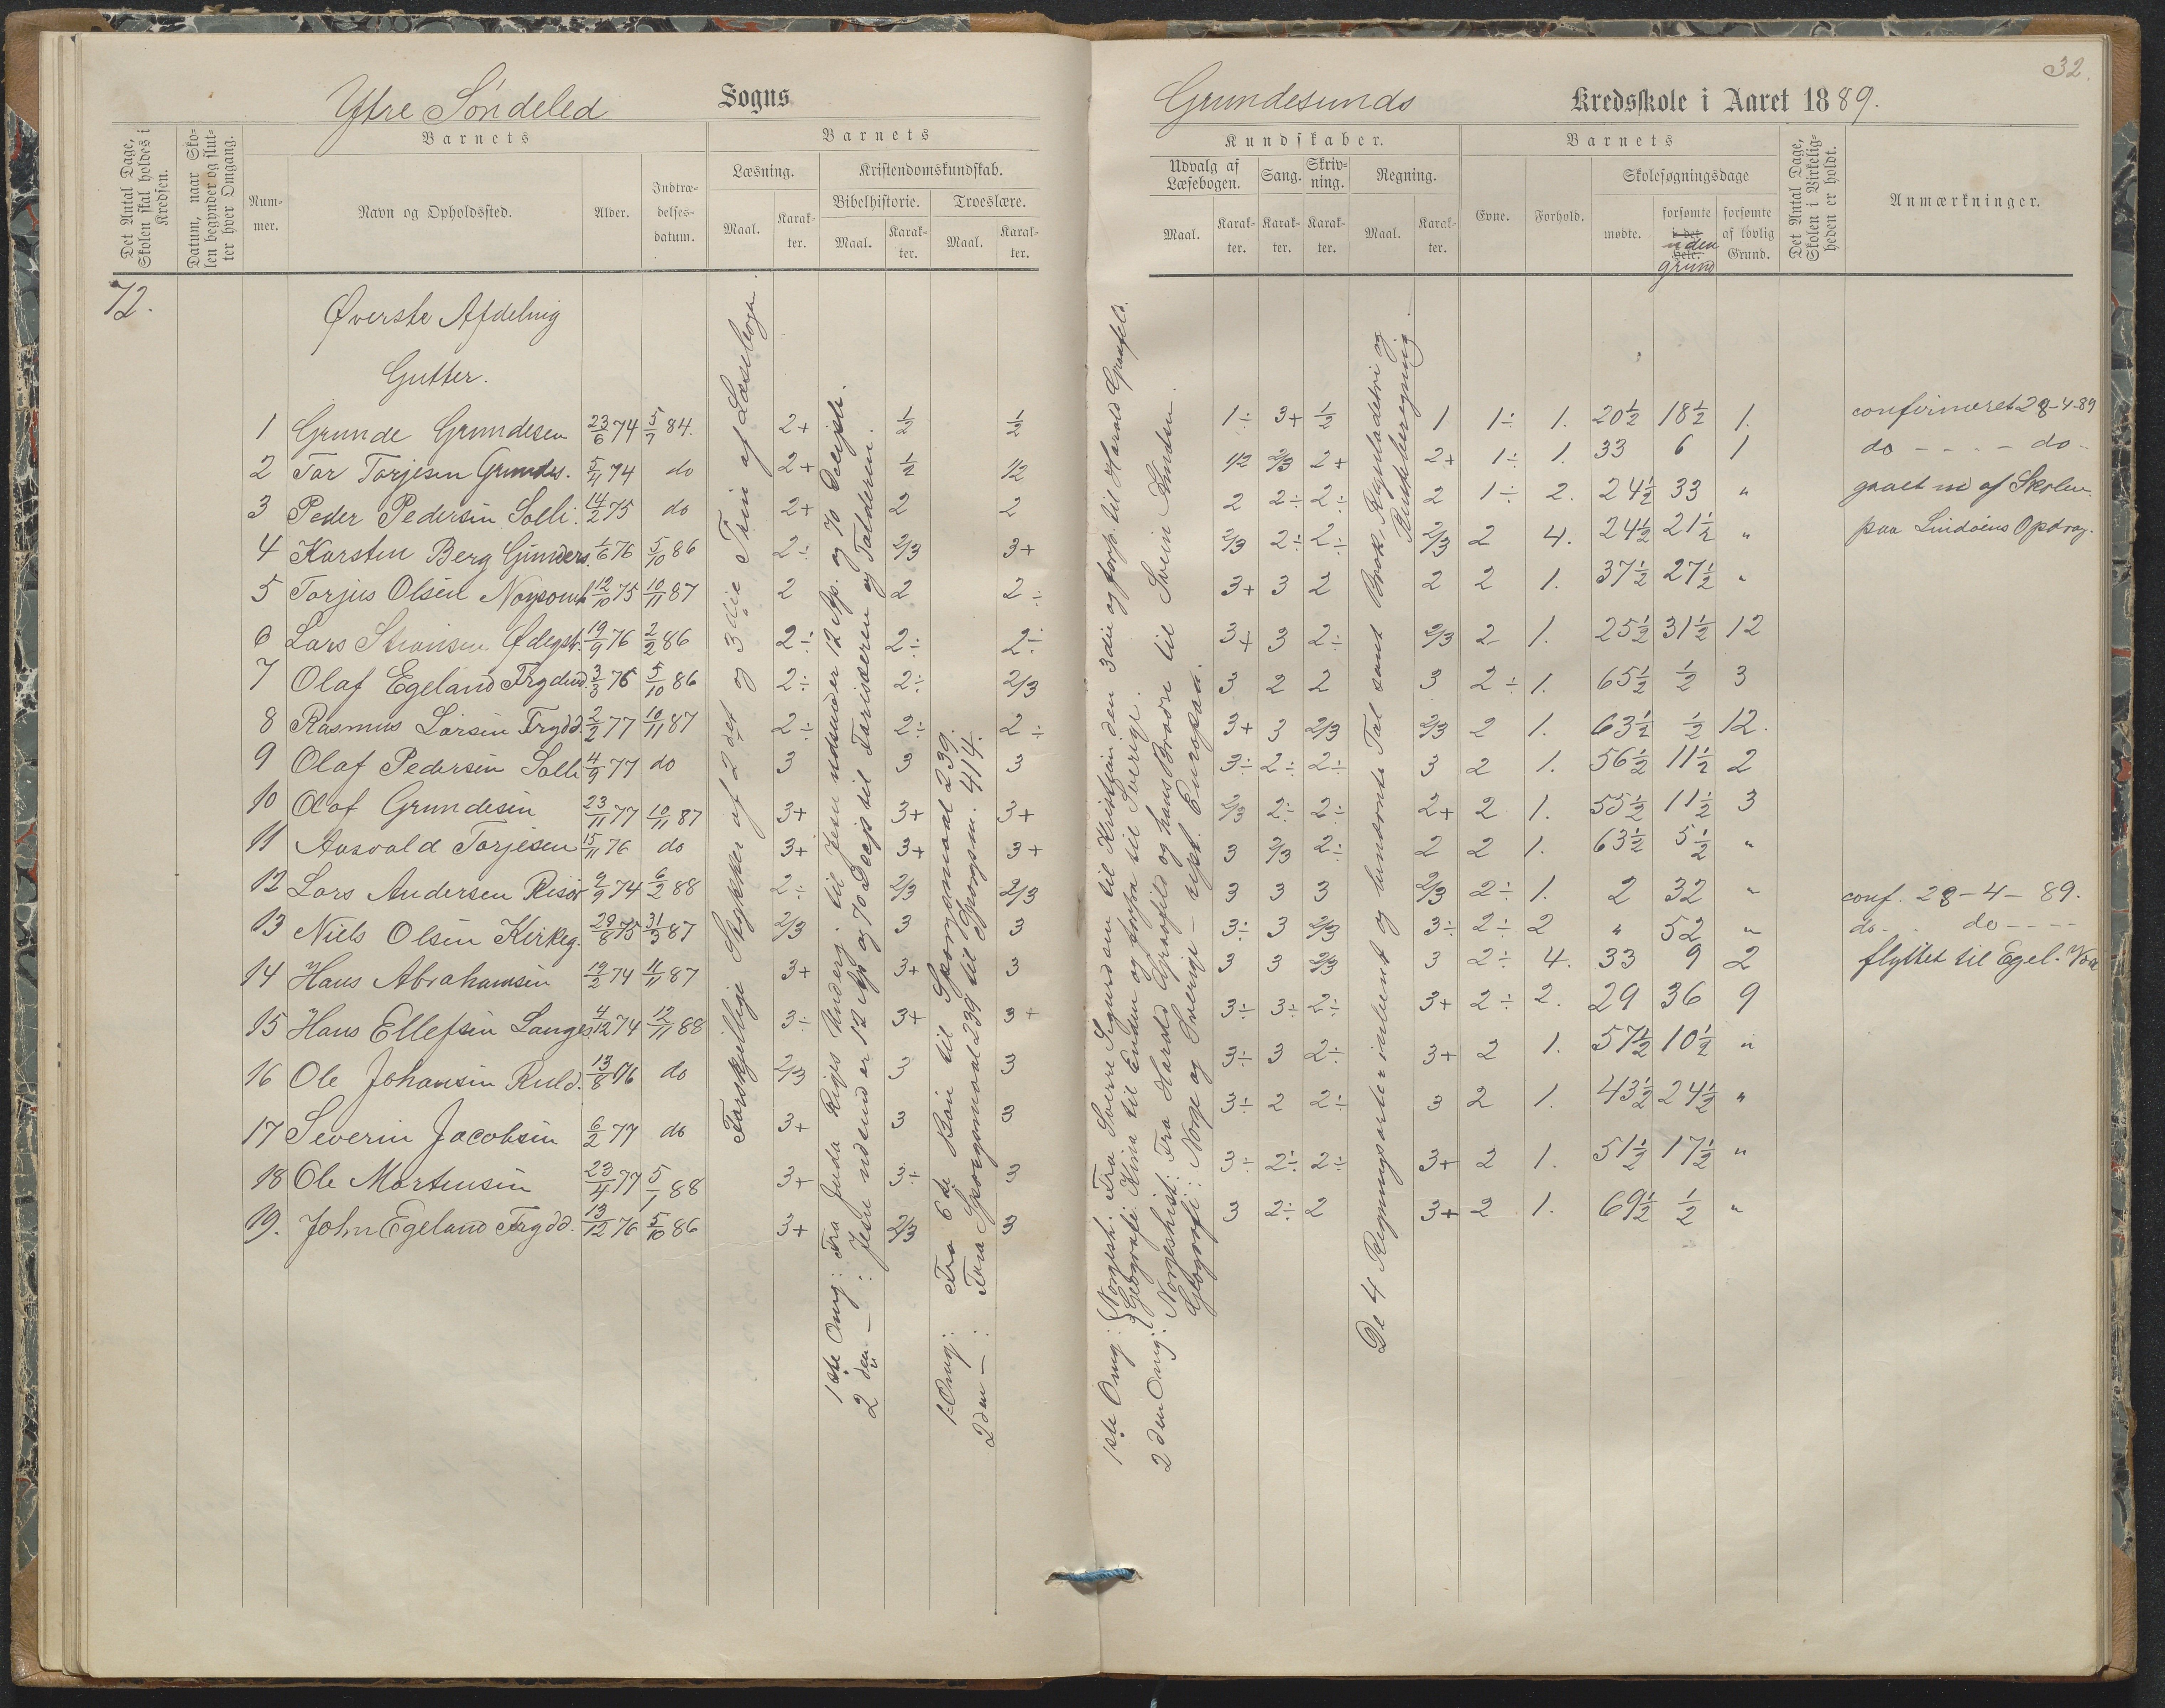 32.
Yttre Söndeled Sogns
Grundesunds Kredsskole i Aaret 1889.
Det Antal Dage, Skolen skal holdes i Kredsen.
Datum, naar Skolen begynder og slutter hver Omgang.
Barnets
Nummer.
Navn og Opholdssted.
Alder.
Indtrædelsesdatum.
Barnets
Læsning.
Kristendomskundskab.
Bibelhistorie.
Troeslære.
Maal.
Karakter.
Maal.
Karakter.
Maal.
Karakter.
Kundskaber.
Udvalg af Læsebogen.
Sang.
Skrivning.
Regning.
Maal.
Karakter.
Karakter.
Karakter.
Maal.
Karakter.
Barnets
Evne.
Forhold.
Skolesøgningsdage
mødte.
forsømte i det Hele. uden grund
forsømte af lovlig Grund.
Det Antal Dage, Skolen i Virkeligheden er holdt.
Anmærkninger.
72.
Øverste Afdelnig
Gutter.
1 Grunde Grundesen 23/6 74 5/7 84. 2+ 1/2 1/2 1÷ 3+ 1/2 1 1÷ 1. 20½ 18½ 1. confirmeret 28-4-89
2 Tor Torjesen Grundes. 5/4 74 do 2+ 1/2 1/2 1/2 2/3 2+ 2+ 1÷ 1. 33 6 1 do - - - - do -
3 Peder Pedersen Solli. 14/2 75 do 2+ 2 2 2 2÷ 2÷ 2 1÷ 2. 24½ 33 " gaaet ud af Skolen.
4 Karsten Berg Gunders. 1/6 76 5/10 86 2÷ 2/3 3+ 2/3 2÷ 2÷ 2/3 2 4. 24½ 21½ " paa Lindøens Opdrag.
5 Torjus Olsen 12/10 75 10/11 87 2 2 2÷ 3+ 3 2 2 2 1. 37½ 27½ "
6 Lars 19/9 76 2/2 86 2÷ 2÷ 2÷ 3+ 3 2÷ 2/3 2 1. 25½ 31½ 12
7 Olaf Egeland Frydend. 3/3 76 5/10 86 2÷ 2÷ 2/3 3 2 2 3 2÷ 1. 65½ ½ 3
8 Rasmus Larsen Frydd. 2/2 77 10/11 87 2÷ 2÷ 2÷ 3+ 3 2/3 2/3 2 1. 63½ ½ 12.
9 Olaf Pedersen Solli 4/9 77 do 3 3 3 3÷ 2÷ 2÷ 3 2 1. 56½ 11½ 2
10 Olaf Grundesen 23/11 77 10/11 87 3+ 3+ 3+ 2/3 2÷ 2÷ 2+ 2 1. 55½ 11½ 3
11 Aasvald Torjesen 15/11 76 do 3+ 3+ 3+ 3 2/3 2÷ 2 2 1. 63½ 5½ "
12 Lars Andersen Risør 9/9 74 6/2 88 2÷ 2/3 2/3 3 3 3 2/3 2÷ 1. 2 32 " conf. 28-4-89.
13 Niels Olsen Kirkeg. 29/8 75 31/3 87 2/3 3 3 3÷ 3 2/3 3÷ 2÷ 2 " 52 " do - do - - - -
14 Hans Abrahamsen 19/2 74 11/11 87 3+ 3+ 3 3 3 2/3 3 2÷ 4. 33 9 2 flyttet til Egel.
15 Hans Ellefsen Langes. 4/12 74 12/11 88 3÷ 3+ 3+ 3÷ 3÷ 2÷ 3+ 2÷ 2. 29 36 9
16 Ole Johansen Ruld. 13/8 76 do 2/3 3 3 3÷ 3 2÷ 3+ 2 1. 57½ 10½ "
17 Severin Jacobsen 6/2 77 do 3+ 3 3 3÷ 2 2÷ 3 2 1. 43½ 24½ "
18 Ole Mortensen 23/4 77 5/1 88 3+ 3÷ 3 3÷ 2÷ 2÷ 3+ 2 1. 51½ 17½ "
19. John Egeland Frydd. 13/12 76 5/10 86 3+ 2/3 3 3 2÷ 2 3+ 2 1. 69½ ½ "
Forskjellige Stykker af 2det og 3die Trin af Læsebogen.
1ste Omg: Fra Juda Riges Underg. til Jesu udsender 12 Ap. og 70 Disciple.
2den — : Jesu udsender 12 Ap. og 70 Discp. til Farisæeren og Tolderen.
1. Omg: Fra 6te Bøn til Spørgsmaal 239.
2den — : Fra Spørgsmaal 239 til Spørgsm. 414.
1ste Omg: Norgesh. Fra Sverre Sigurdsen til Kristian den 3die og forfr. til Harald Graafeld.
Geografi. Kina til Enden og forfra til Sverige.
2den Omg: Norgeshist: Fra Harald Graafeld og hans Brødre til Svein Knudsen.
Geografi: Norge og Sverige — rept. Europa.
De 4 Regningsarter i ubenevnt og benævnte Tal samt Brøk, Regula de tri og Rentesregning.